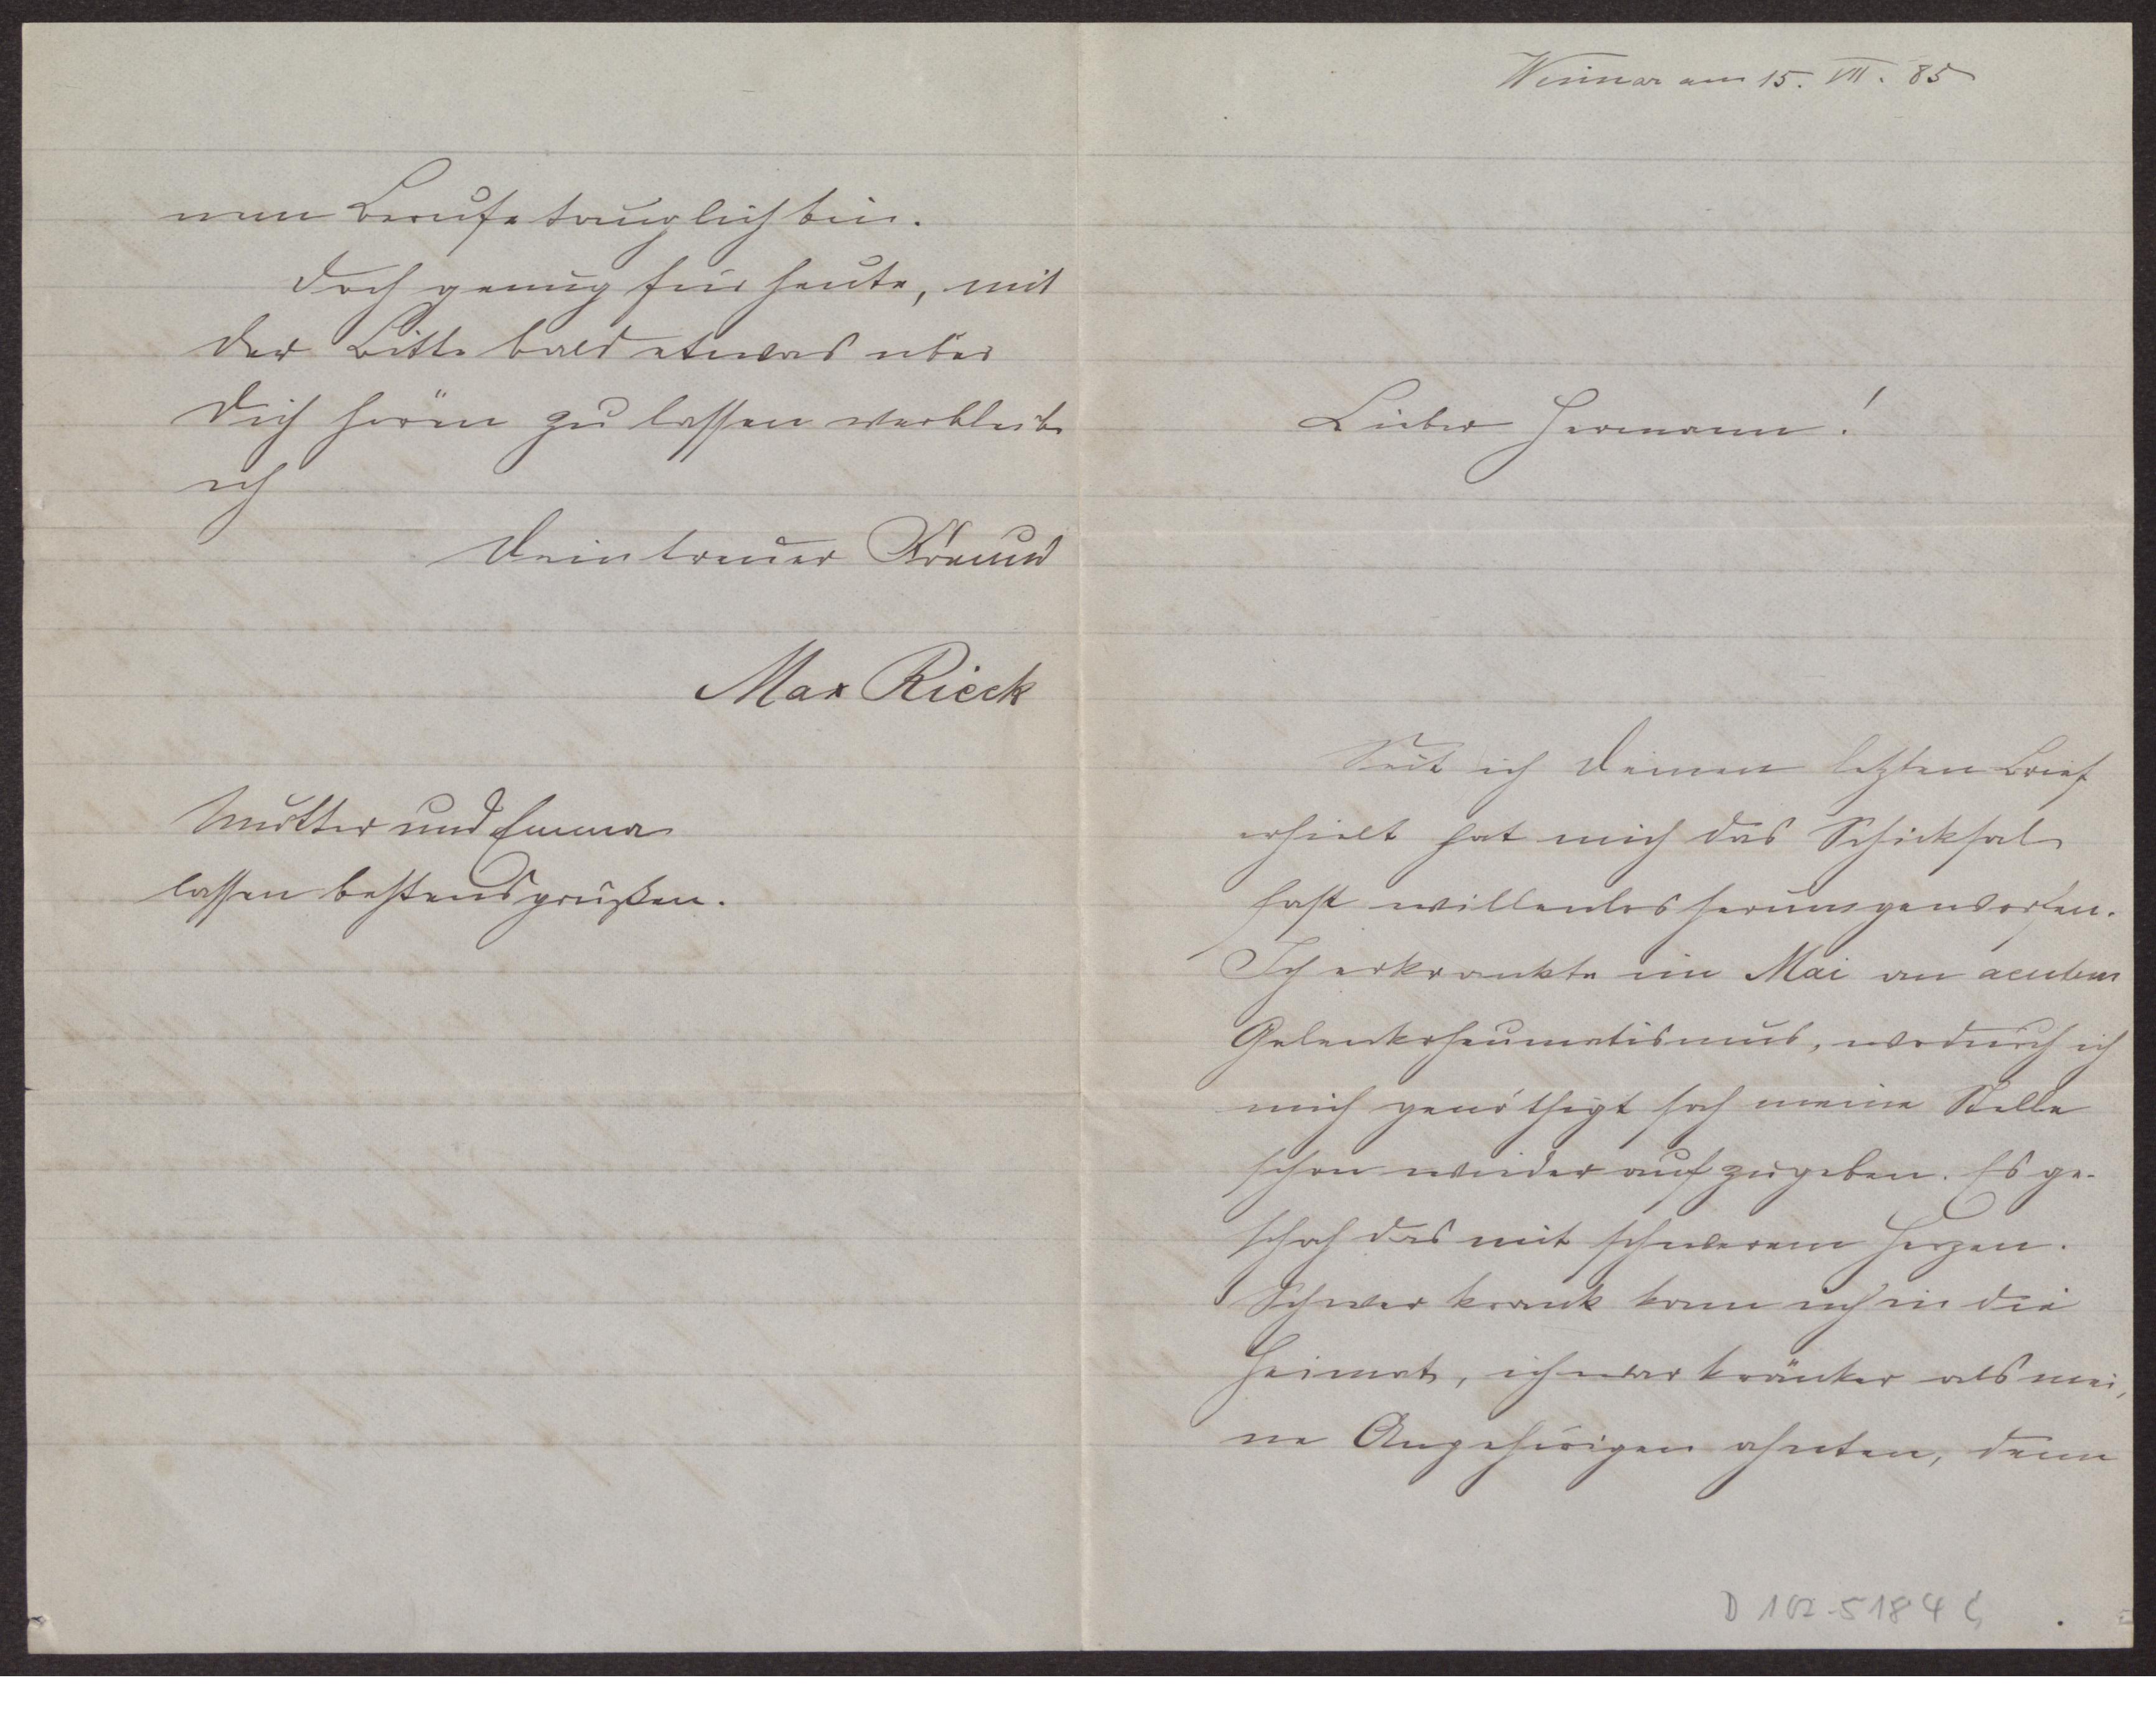 Weimar am 15. VII. 85
Lieber Hermann!
Seit ich Deinen letzten Brief
erhielt hat mich das Schicksal
fast willenlos herumgeworfen.
Ich erkrankte im Mai an acutem
Gelenkrheumatismus, wodurch ich
mich genöthigt sah meine Stelle
schon wieder aufzugeben. Es ge-
schah das mit schwerem Herzen.
Schwer krank kam ich in die
Heimat, ich war kränker als mei,
ne Angehörigen ahnten, denn
D 102-5184
nem Berufe tauglich bin.
Doch genug für heute, mit
der Bitte bald etwas über
Dich hören zu lassen verbleibe
ich
Dein treuer Freund
Max Rieck
Mutter und Emma
lassen bestens grüßen.